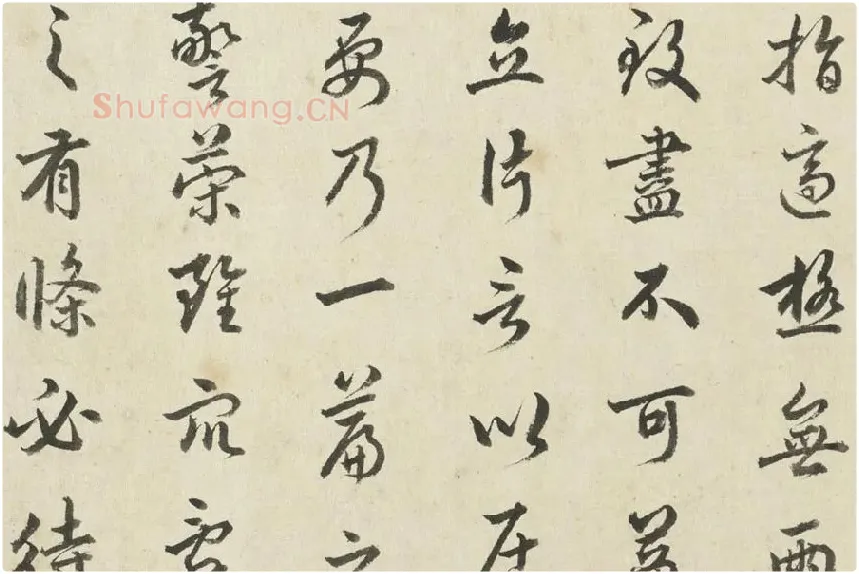 指適極無兩
致盡不可益
立片言以居
要乃一篇之
警策雖眾辭
之有條必待
Shufawang.CN